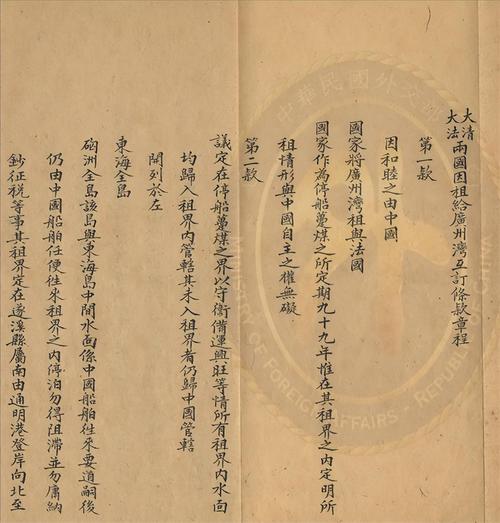 大清
大法
兩國因租給廣州灣互訂條款章程
第一款
因和睦之由中國
國家將廣州灣租與法國
國家作為停船躉煤之所定期九十九年惟在其租界之內定明所
租情形與中國自主之權無礙
第二款
議定在停船躉煤之界以守衛備運興旺等情所有租界內水面
均歸入租界內管轄其未入租界者仍歸中國管轄
開列於左
東海全島
硇洲全島該島與東海島中間水面係中國船舶往來要道嗣後
仍由中國船舶任便往來租界之內停泊勿得阻滯並勿庸納
鈔征稅等事其租界定在遂溪縣屬南由通明港登岸向北至
中華民國外交部
MINISTRY OF FOREIGN AFFAIRS REPUBLIC